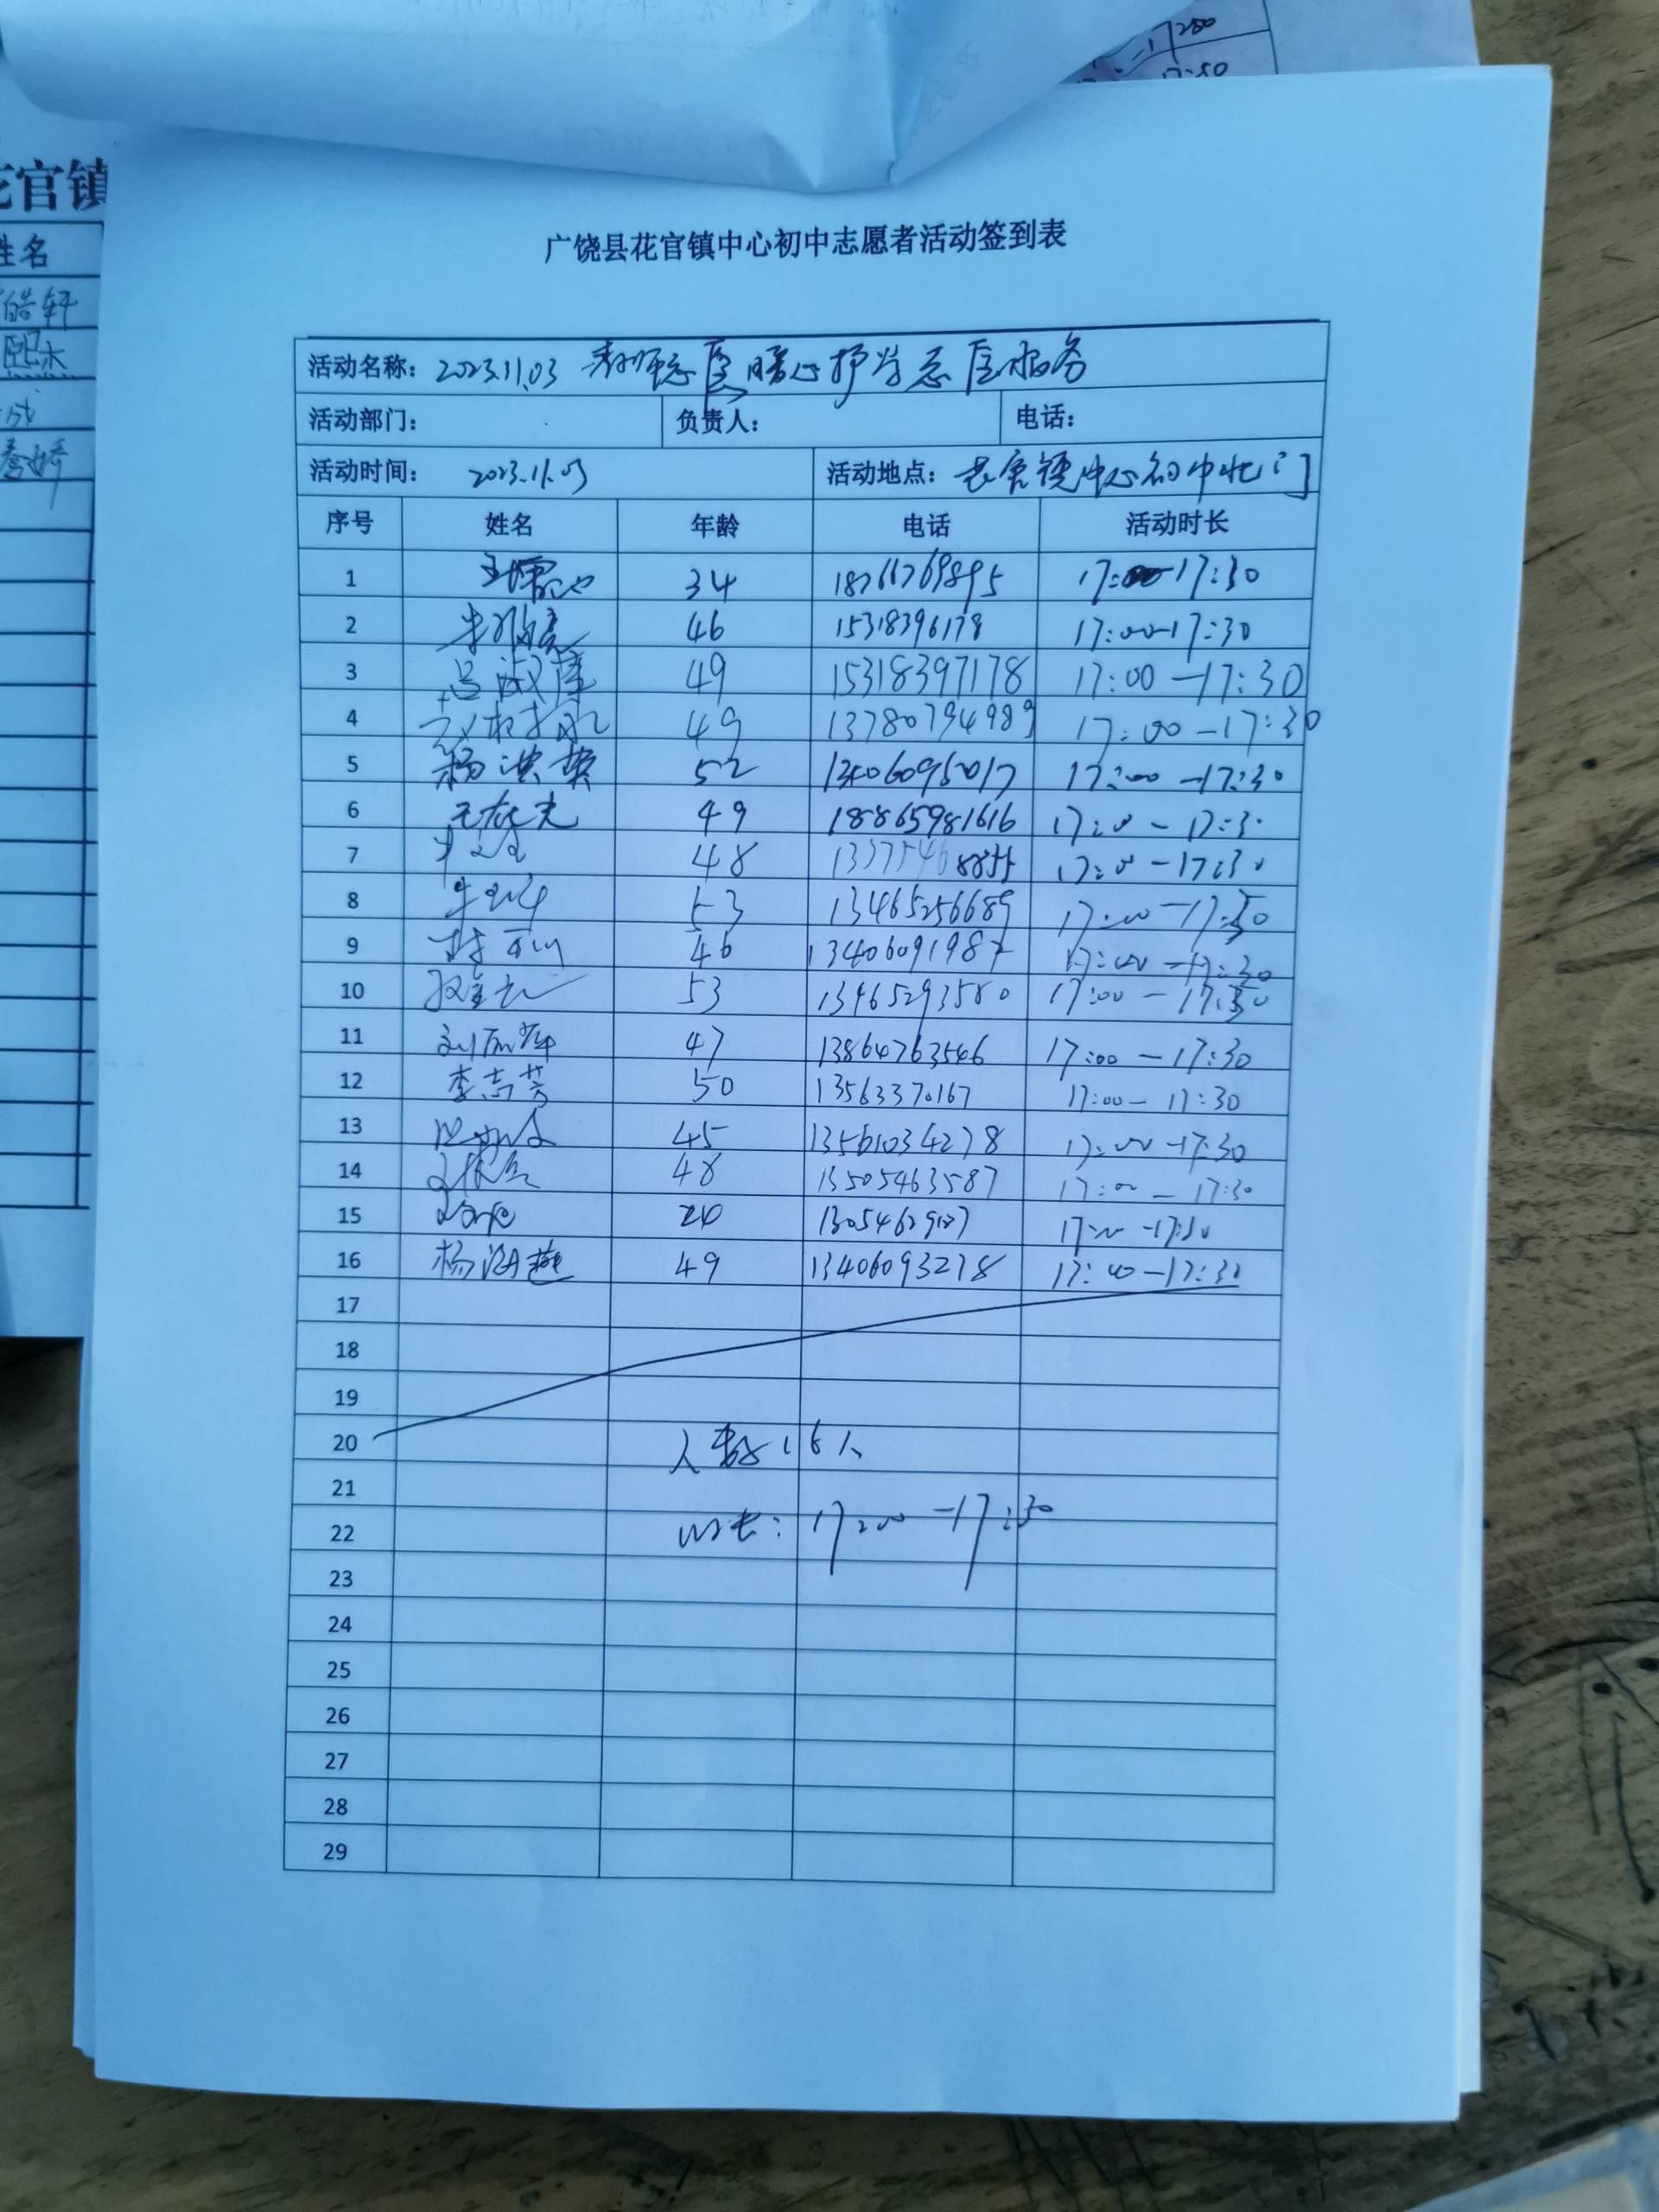 17:50
花官镇
姓名
皓轩
熙杰
广饶县花官镇中心初中志愿者活动签到表
活动名称: 2023.11.03 教师志愿暖心护学志愿服务
活动部门: 负责人: 电话:
活动时间: 2023.11.03 活动地点: 花官镇中心初中北门
序号 姓名 年龄 电话 活动时长
1 34 18766769895 17:00-17:30
2 46 15318396178 17:00-17:30
3 吕 49 15318397178 17:00-17:30
4 49 13780794989 17:00-17:30
5 杨洪英 52 13406095017 17:00-17:30
6 49 18865981616 17:00-17:30
7 48 17:00-17:30
8 53 13465256689 17:00-17:30
9 46 13406091987 17:00-17:30
10 53 13465293580 17:00-17:30
11 刘 47 13864763546 17:00-17:30
12 李志芳 50 13563370167 17:00-17:30
13 45 13561034278 17:00-17:30
14 48 13505463587 17:00-17:30
15 17:00-17:30
16 杨 49 13406093278 17:00-17:30
17
18
19
20 人数16人
21
22 时长: 17:00-17:30
23
24
25
26
27
28
29